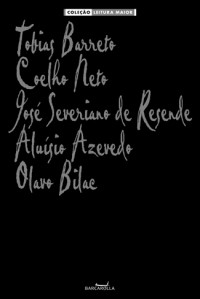 COLEÇÃO LEITURA MAIOR
Tobias Barreto
Coelho Neto
José Severiano de Resende
Aluísio Azevedo
Olavo Bilac
BARCAROLLA